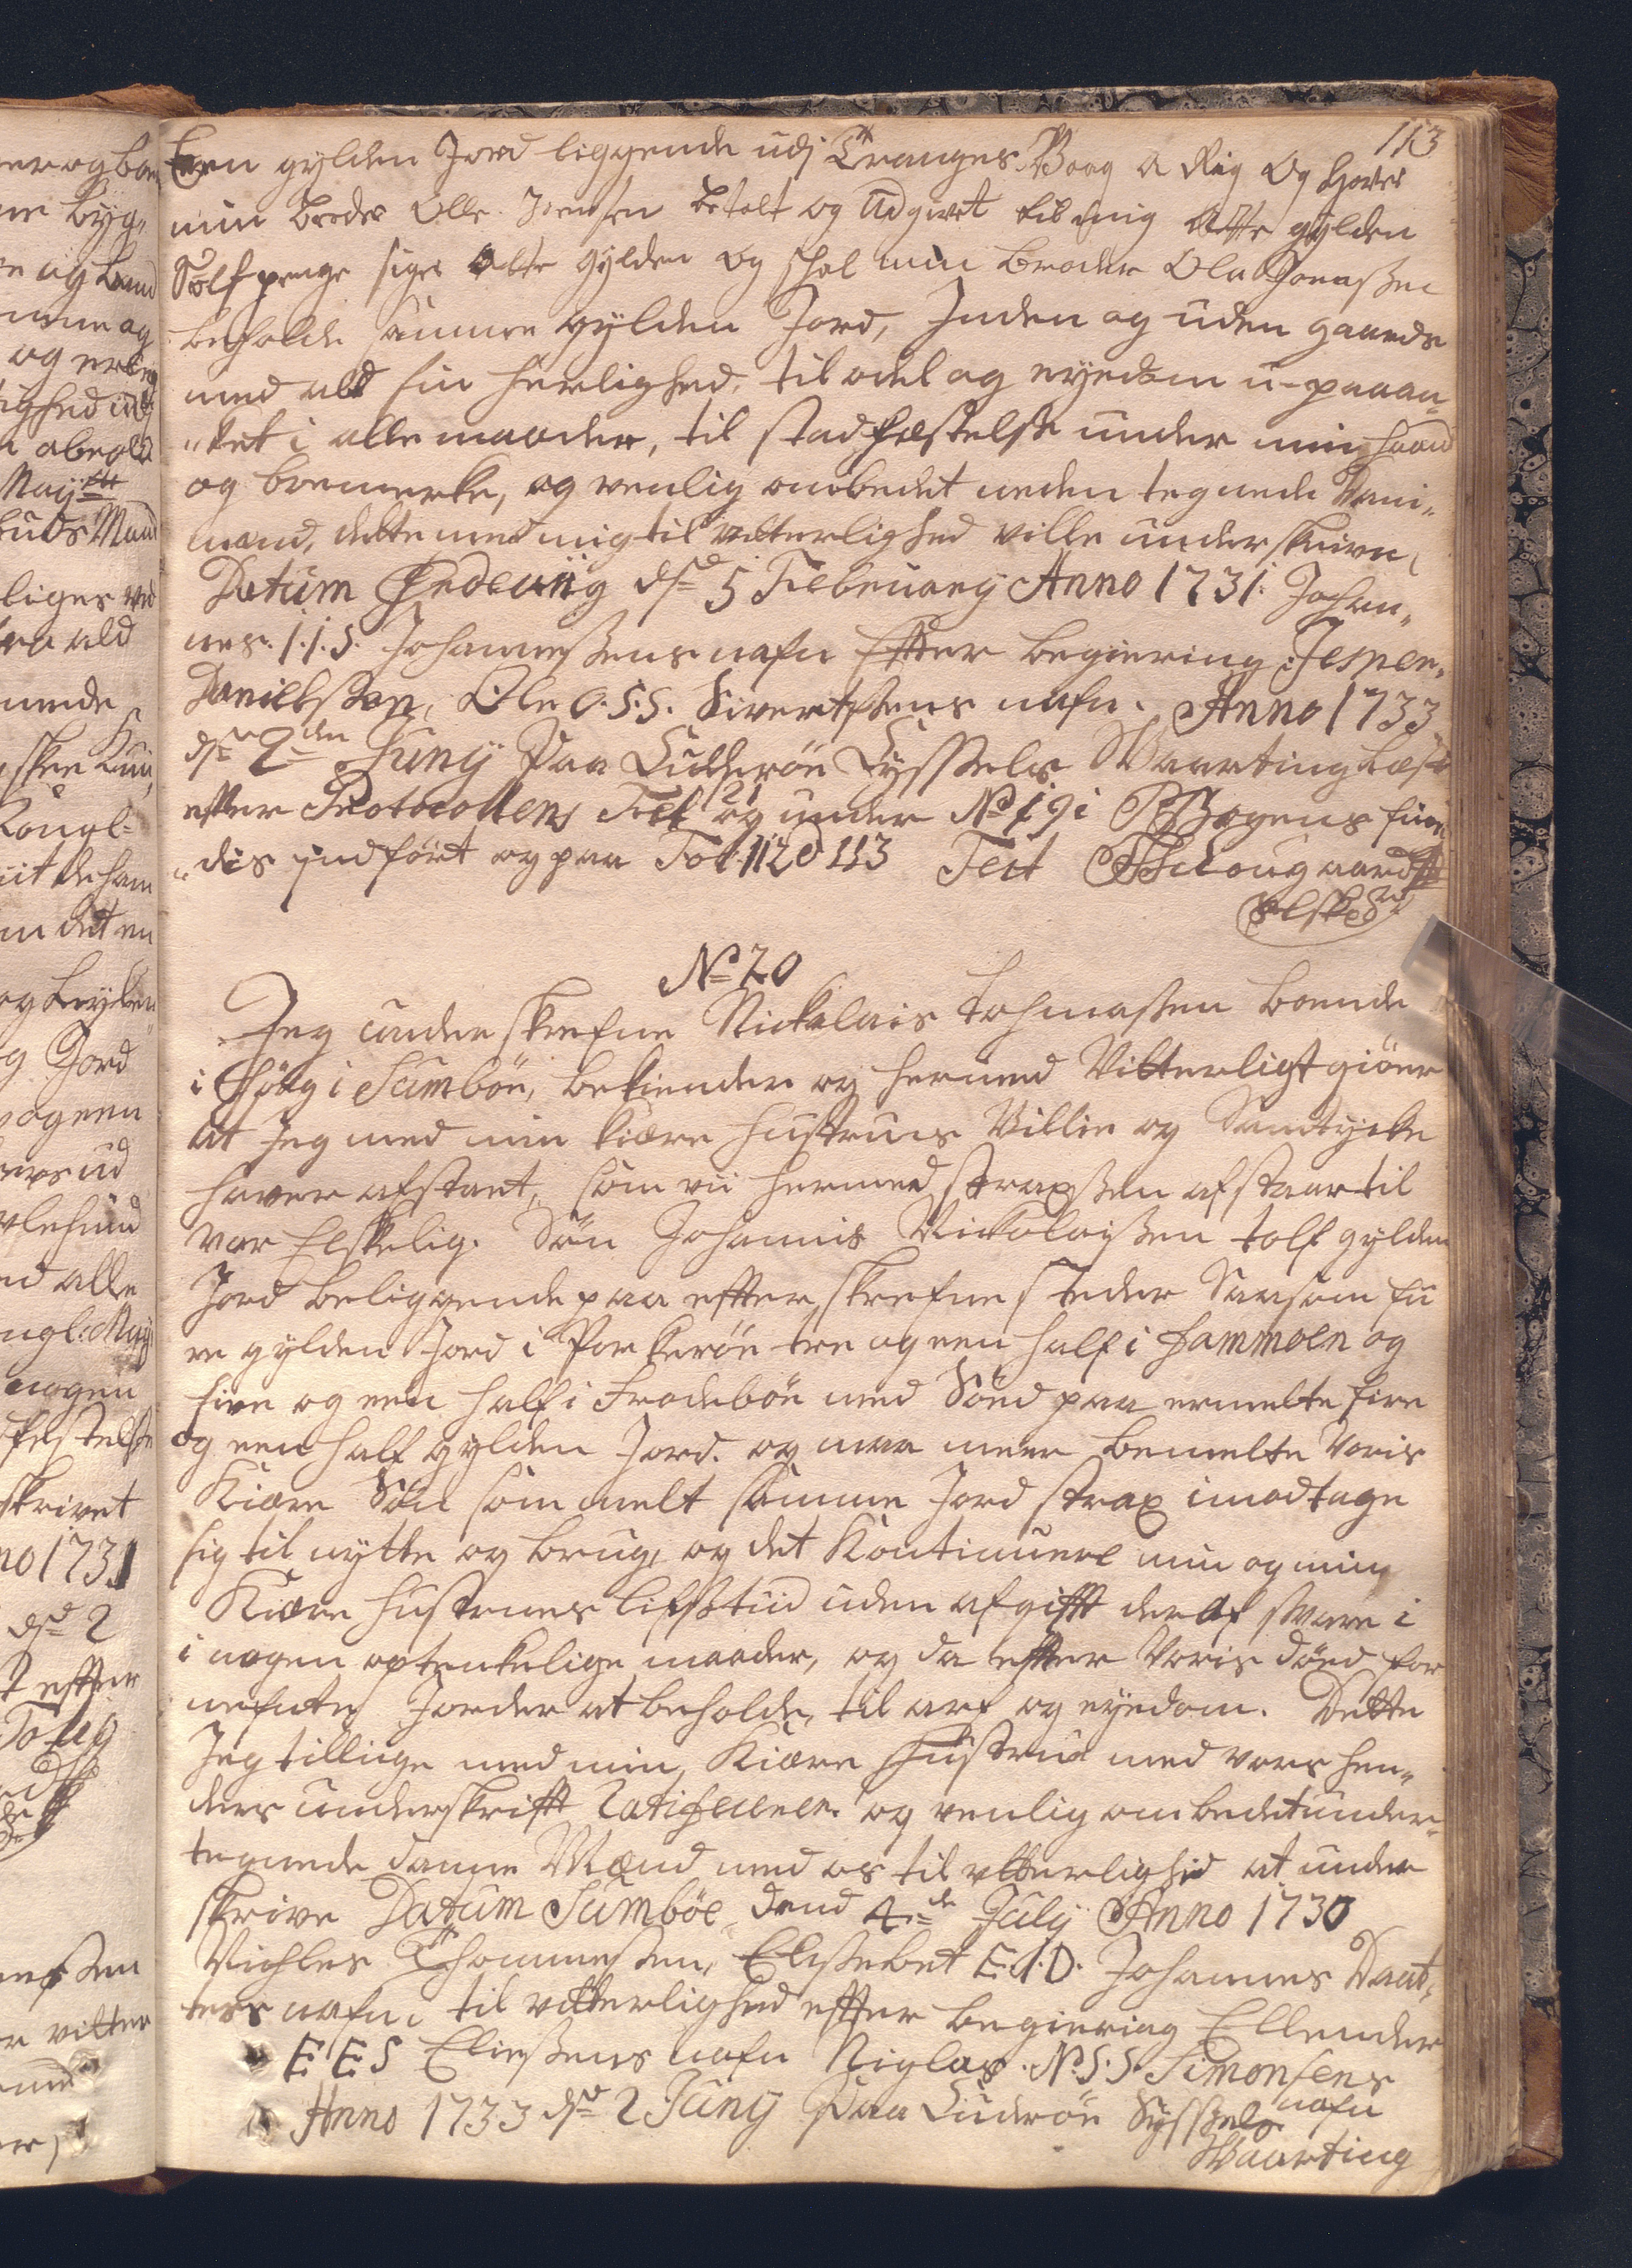 113
Een gylden Jord liggende udj Tranges Vaag a Rig Og Haver
min broder Olle Joensen betalt og Udgivet til mig Otte gylden
Sølfpenge siger Otte Gylden og schal min broder Ola Jonaßen
beholde samme gylden Jord, Inden og uden gaards
med ald sin Herlighed, til odel og eyedom u-paaan-
"ket i alle maader, til stadfæstelse under min haand
og bomerke, og venlig ombedet neden tegnede Danne-
mænd, dette med mig til vitterlighed ville underskrive,
Datum dñ 5 Februarij Anno 1731. Johan-
nes. I.I.S. Johanneßens nafn Efter begiering Jesper
Danielsßen, Ole O.S.S. Sivertßens nafn. Anno 1733
dñ 2den Junij Paa Suderøe Sysßels Waarting læst
efter Protocollens Fol 21 og under No 19 i P Bogens fin-
"dis jndført og paa Fol. 112 & 113 Test
No 20
Jeg underskrefne Nickelais Tohmaßen boende
i Høyg i Sumbøe, bekiender og hermed Vitterligt giøer
at Jeg med min kiære Hustrues Villie og Samtycke
haver afstaaet, som vii hermed straxßen afstaar til
vor Elskelig Søn Johannis Nickolaißen tolf gylden
Jord beliggende paa efterskrefne steder Saasom fii
re gylden Jord i Porkerøe tre og een half i Hammoen og
fire og een half i Frodebøe med Sønd paa ermelte fire
og een half gylden Jord. og maa meer bemelte Voris
Kiære Søn som melt samme Jord strax imodtage
sig til nytte og brug, og det Kontinuere min og min
Kiære Hustrues lifstiid uden afgifft deraf svare i
i nogen optenkelige maader, og da efter Voris død for
nefnte Jorder at beholde, til arf og eyedom. Dette
Jeg tillige med min Kiære Hustrue med vores hen-
ders underskrifft Ratificerer og venlig ombedet under-
tegnede danne Mænd med os til vitterlighed at under
skrive Datum Sumbøe dend 4de July Anno 1730
Nichles Thommesen, Elsebet E.I.D. Johannes Daat-
ters nafn, til vitterlighed efter begiering Ellender
E E S Eließens nafn Niglas. N.S.S. Simonsens
nafn
Anno 1733 dñ 2 Junij Paa Suderøe Sysßels
Waarting